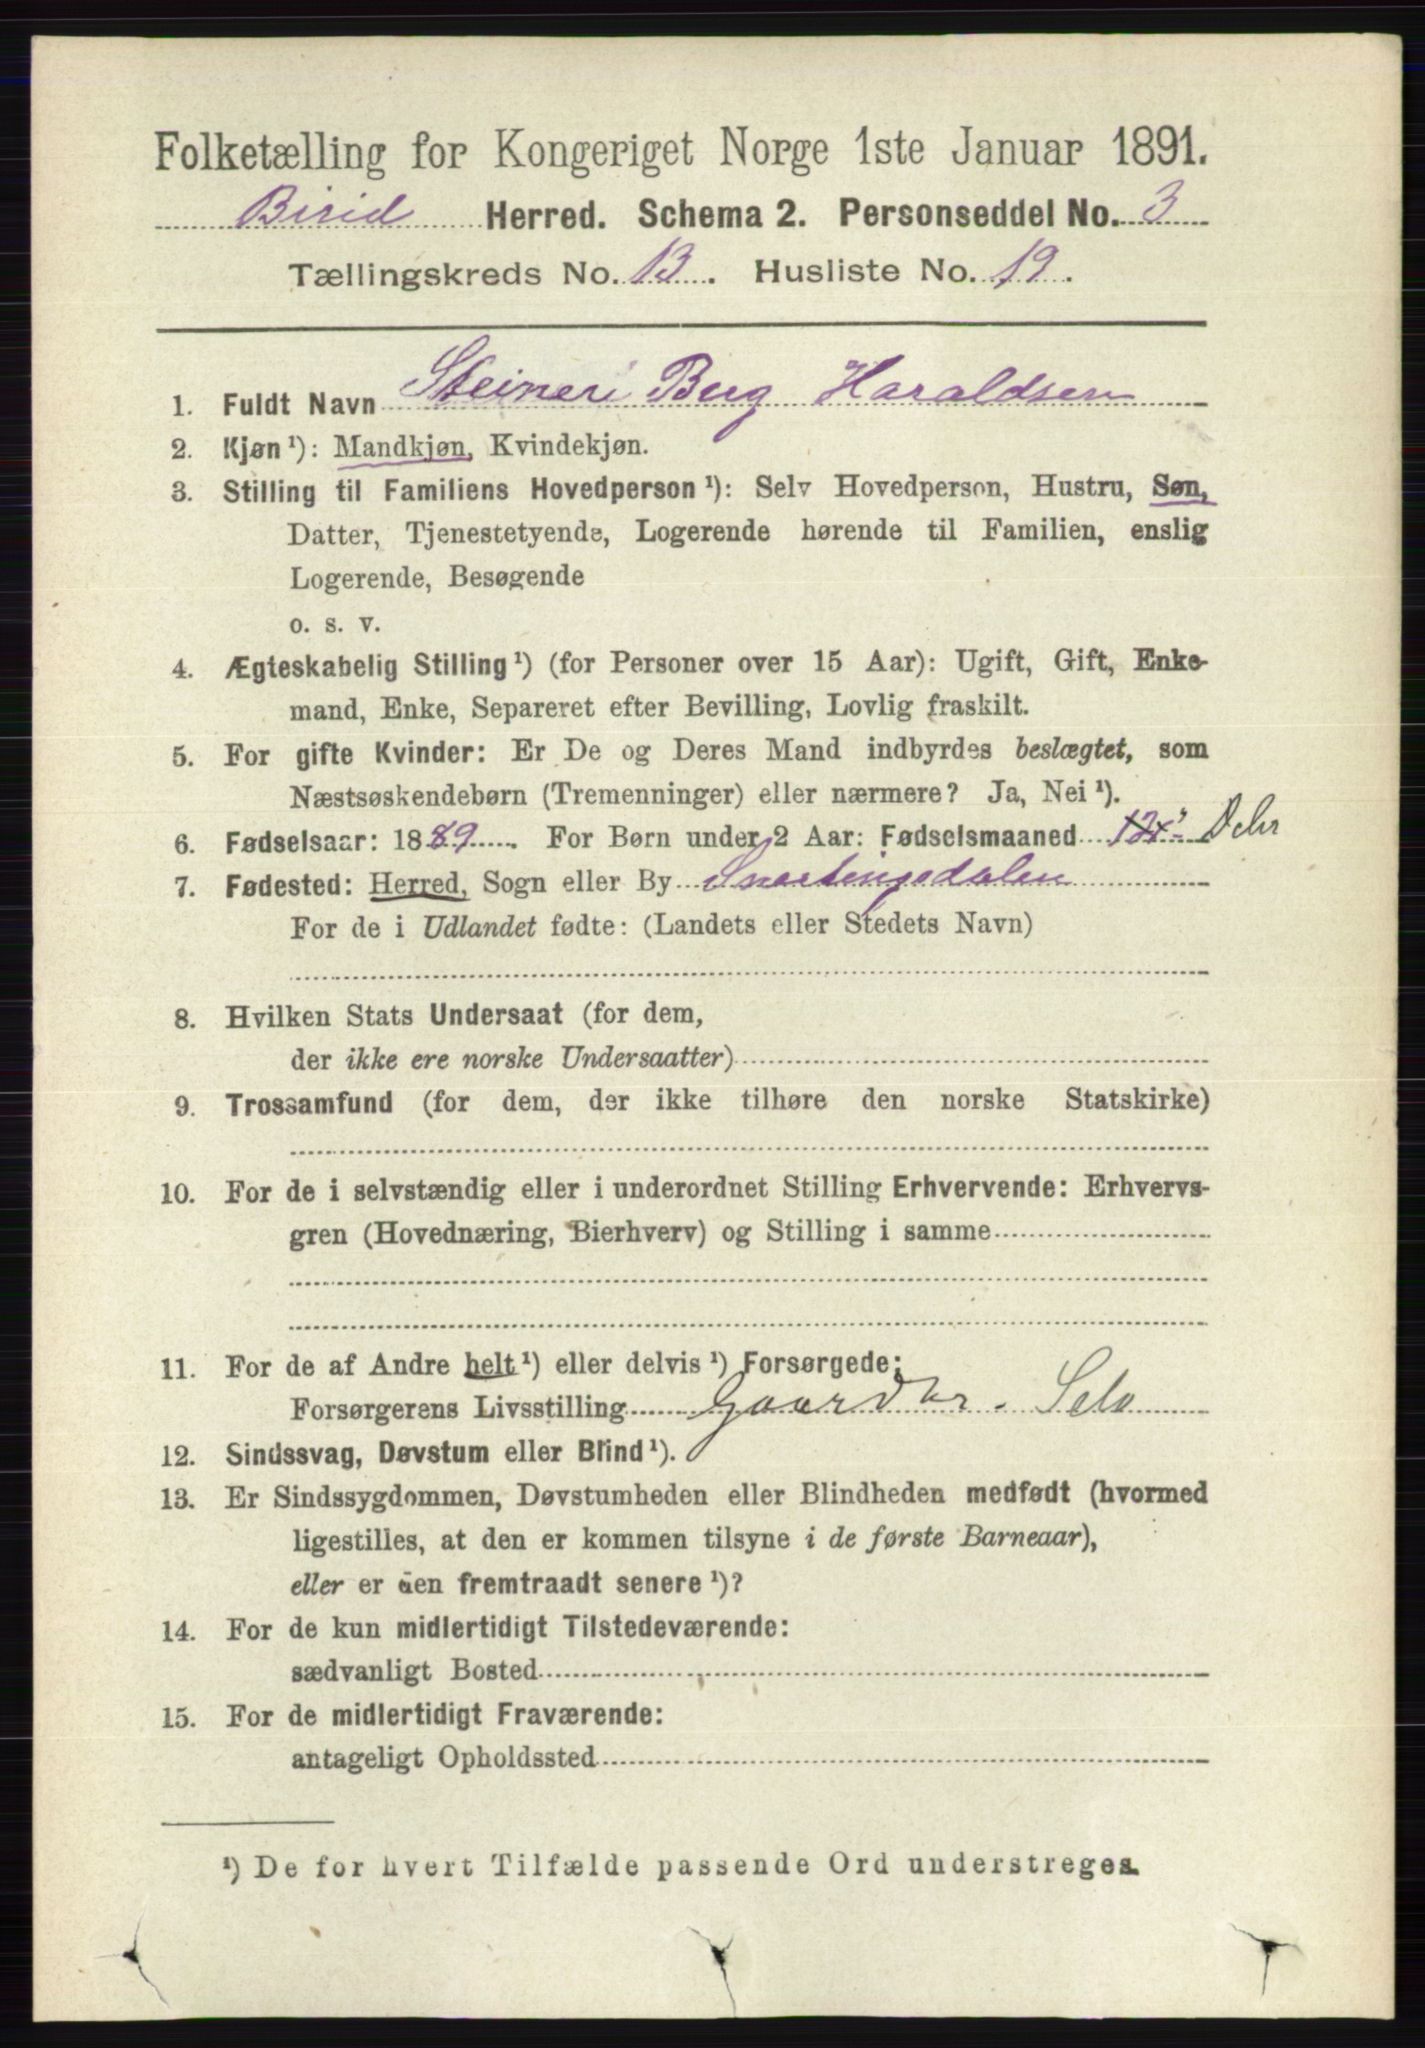 Folketælling for Kongeriget Norge 1ste Januar 1891.
Birid Herred. Schema 2. Personseddel No. 3
Tællingskreds No. 13. Husliste No. 19.
1. Fuldt Navn Steineri Berg Haraldsen
2. Kjøn¹): Mandkjøn, Kvindekjøn.
3. Stilling til Familiens Hovedperson¹): Selv Hovedperson, Hustru, Søn,
Datter, Tjenestetyende, Logerende hørende til Familien, enslig
Logerende, Besøgende
o. s. v.
4. Ægteskabelig Stilling¹) (for Personer over 15 Aar): Ugift, Gift, Enke-
mand, Enke, Separeret efter Bevilling, Lovlig fraskilt.
5. For gifte Kvinder: Er De og Deres Mand indbyrdes beslægtet, som
Næstsøskendebørn (Tremenninger) eller nærmere? Ja, Nei¹).
6. Fødselsaar: 1889. For Børn under 2 Aar: Fødselsmaaned Debr
7. Fødested: Herred, Sogn eller By Snertingsdalen
For de i Udlandet fødte: (Landets eller Stedets Navn)
8. Hvilken Stats Undersaat (for dem,
der ikke ere norske Undersaatter)
9. Trossamfund (for dem, der ikke tilhøre den norske Statskirke)
10. For de i selvstændig eller i underordnet Stilling Erhvervende: Erhvervs-
gren (Hovednæring, Bierhverv) og Stilling i samme
11. For de af Andre helt¹) eller delvis¹) Forsørgede:
Forsørgerens Livsstilling Gaardbr. Selv
12. Sindssvag, Døvstum eller Blind¹).
13. Er Sindssygdommen, Døvstumheden eller Blindheden medfødt (hvormed
ligestilles, at den er kommen tilsyne i de første Barneaar),
eller er den fremtraadt senere¹)?
14. For de kun midlertidigt Tilstedeværende:
sædvanligt Bosted
15. For de midlertidigt Fraværende:
antageligt Opholdssted
¹) De for hvert Tilfælde passende Ord understreges.